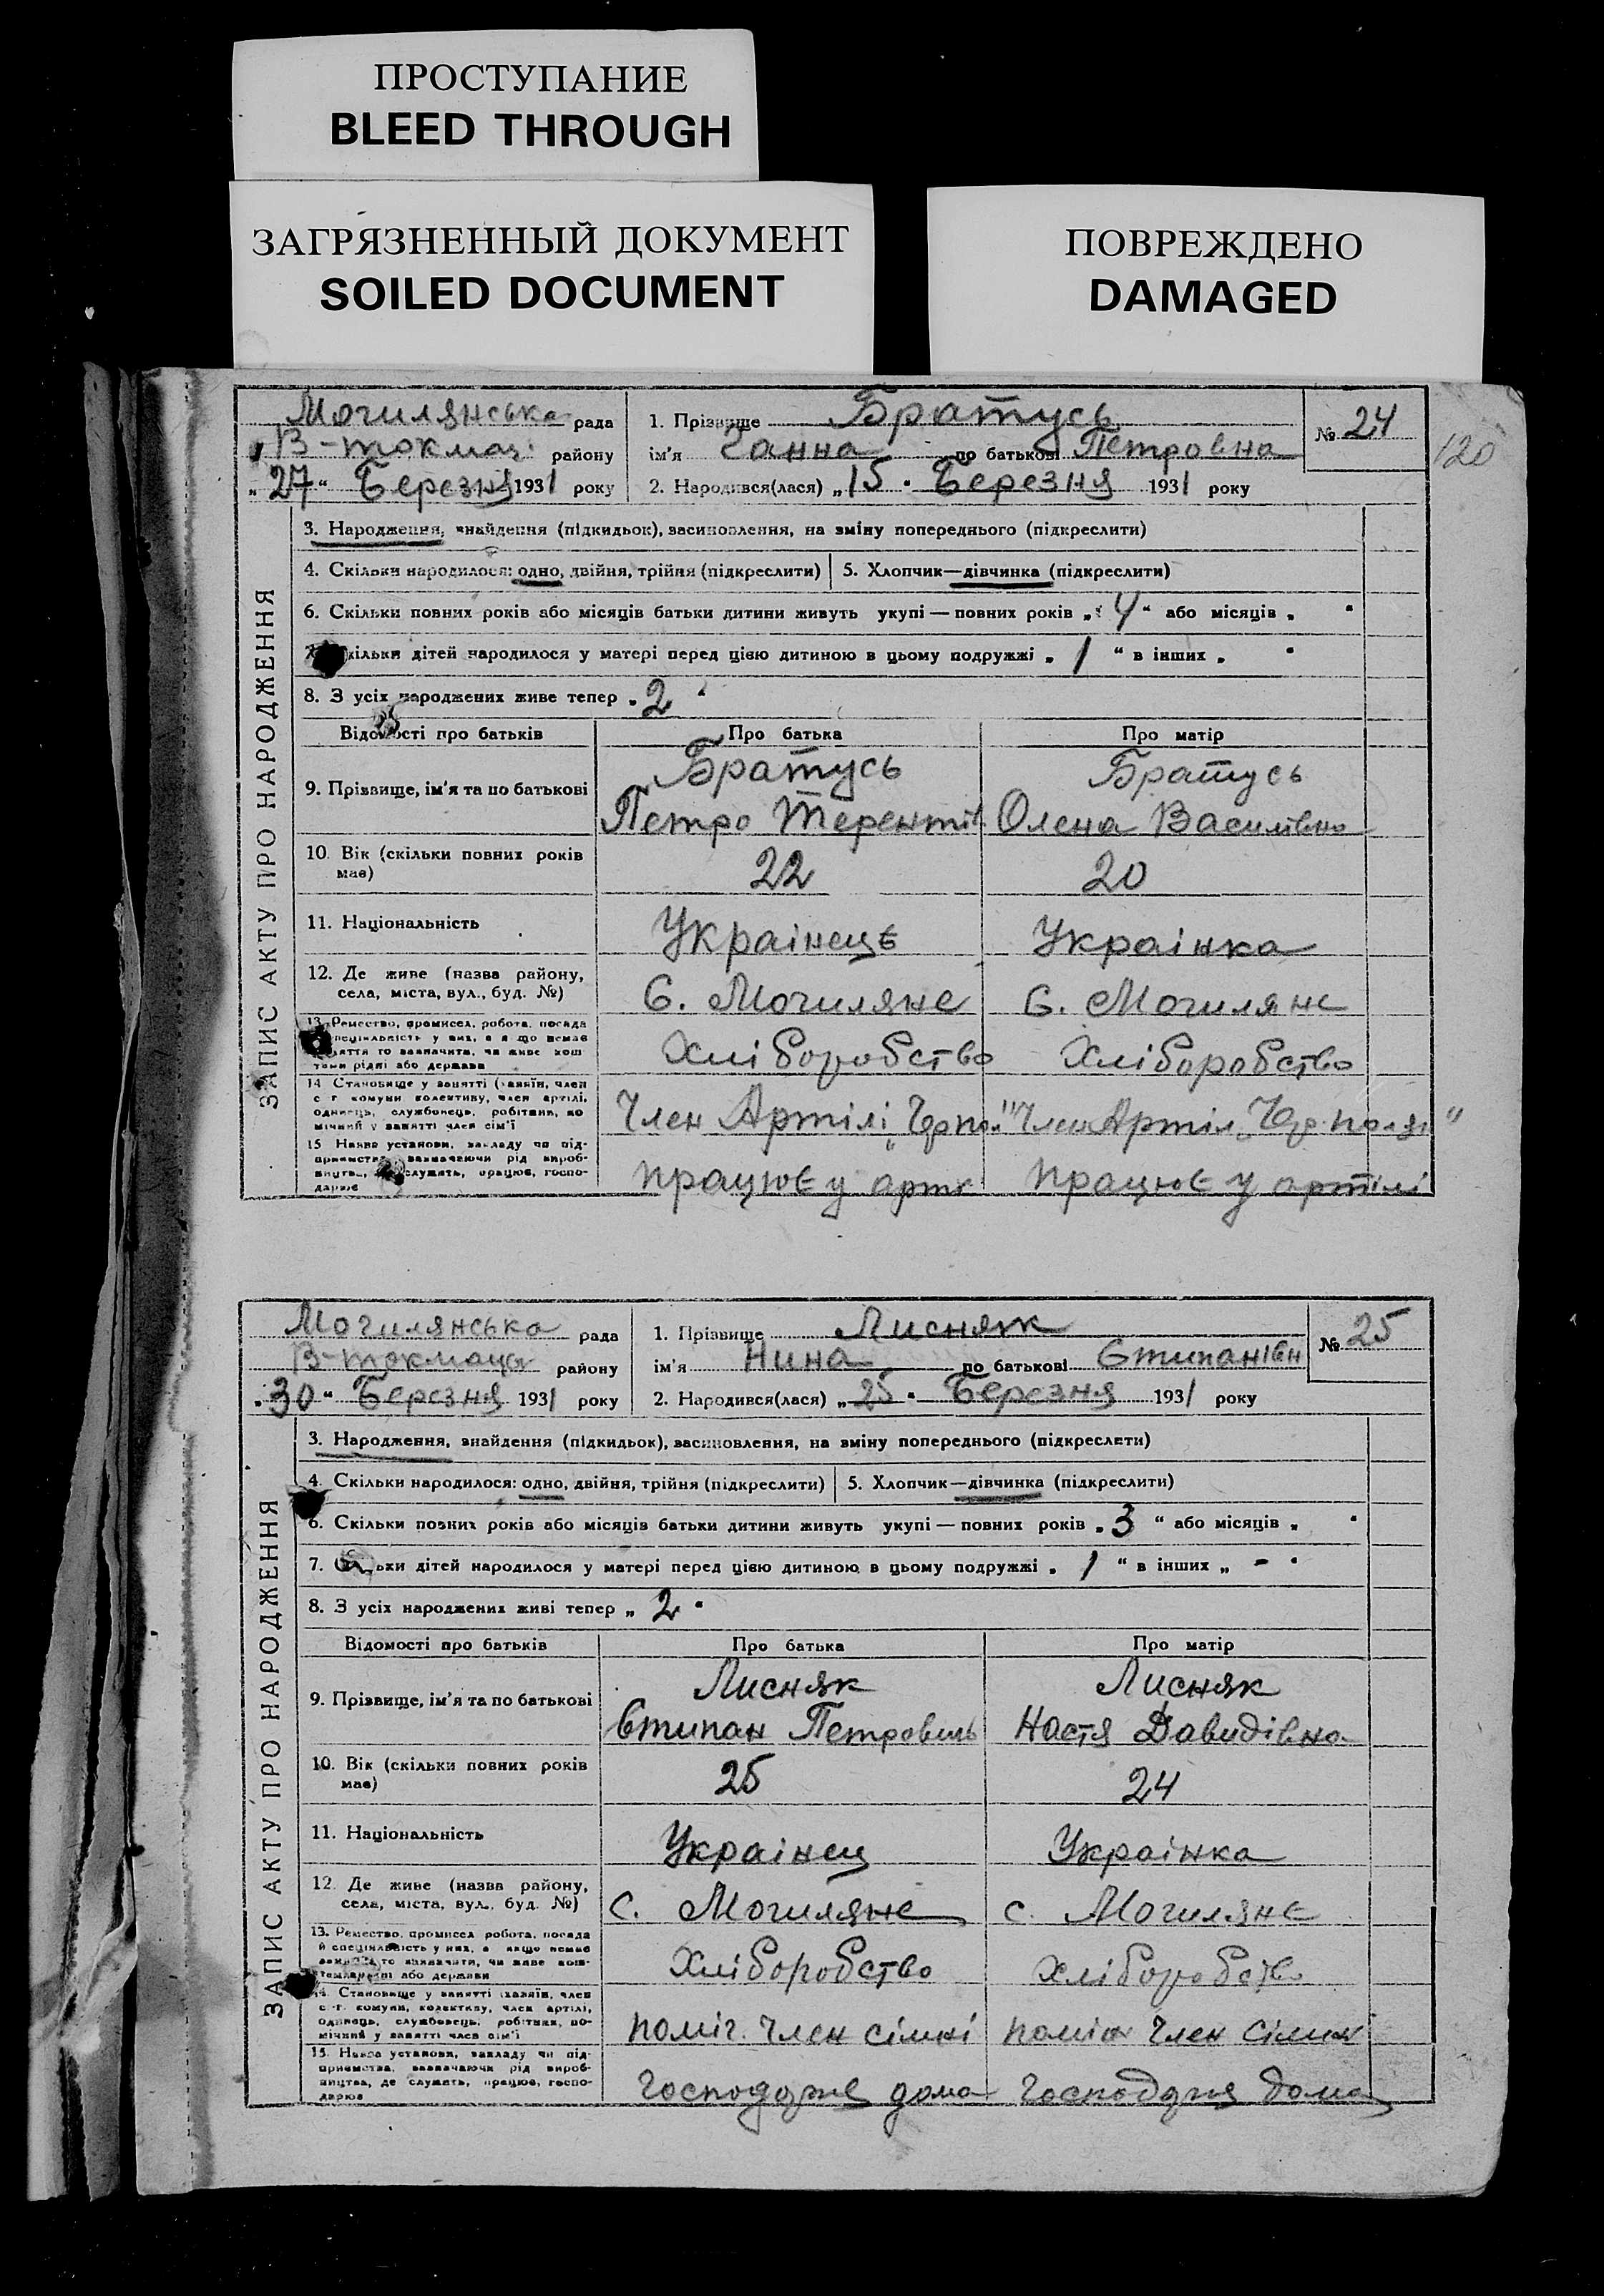 ПРОСТУПАНИЕ
BLEED THROUGH
ЗАГРЯЗНЕННЫЙ ДОКУМЕНТ
SOILED DOCUMENT
ПОВРЕЖДЕНО
DAMAGED
120
Могилянська рада
В-токмац району
„27“ Березня 1931 року
1. Прізвище Братусь
ім'я Ганна по батькові Петровна
2. Народився(лася) „15“ Березня 1931 року
№ 24
ЗАПИС АКТУ ПРО НАРОДЖЕННЯ
3. Народження, знайдення (підкидьок), засиновлення, на зміну попереднього (підкреслити)
4. Скільки народилося: одно, двійня, трійня (підкреслити) 5. Хлопчик—дівчинка (підкреслити)
6. Скільки повних років або місяців батьки дитини живуть укупі — повних років „4“ або місяців „ “
кільки дітей народилося у матері перед цією дитиною в цьому подружжі „1“ в інших „ “
8. З усіх народжених живе тепер „2“
Відомості про батьків Про батька Про матір
9. Прізвище, ім'я та по батькові Братусь Братусь
Петро Терентів Олена Василівна
10. Вік (скільки повних років має) 22 20
11. Національність Украінець Украінка
12. Де живе (назва району, села, міста, вул., буд. №) С. Могиляне С. Могиляне
13. Ремество, промисел, робота, посада
Хліборобство Хліборобство
14 Становище у занятті (хазяїн, член с.-г. комуни колективу, член артілі, одинець, службовець, робітник, помічний у занятті член сім'ї
Член Артілі Член Артіл
15 Назва установи, закладу чи підприємства, зазначаючи рід виробництва, служить, працює, господарює
працює у арт працює у артілі
Могилянська рада
В-токмацьк району
„30“ Березня 1931 року
1. Прізвище Лисняк
ім'я Нина по батькові Стипанівн
2. Народився(лася) „25“ Березня 1931 року
№ 25
ЗАПИС АКТУ ПРО НАРОДЖЕННЯ
3. Народження, знайдення (підкидьок), засиновлення, на зміну попереднього (підкреслити)
4. Скільки народилося: одно, двійня, трійня (підкреслити) 5. Хлопчик—дівчинка (підкреслити)
6. Скільки повних років або місяців батьки дитини живуть укупі — повних років „3“ або місяців „ “
7. ьки дітей народилося у матері перед цією дитиною в цьому подружжі „1“ в інших „-“
8. З усіх народжених живі тепер „2“
Відомості про батьків Про батька Про матір
9. Прізвище, ім'я та по батькові Лисняк Лисняк
Стипан Петрович Настя Давидівна
10. Вік (скільки повних років має) 25 24
11. Національність Украінец Украінка
12. Де живе (назва району, села, міста, вул., буд. №) С. Могиляне С. Могиляне
13. Ремество, промисел робота, посада й спеціяльність у них, а якщо немає
Хліборобство Хліборобство
14. Становище у занятті (хазяїн, член с.-г. комуни, колективу, член артілі, одинець, службовець, робітник, помічний у занятті член сім'ї
поміч. Член сімні поміч Член Сімні
15. Назва установи, закладу чи підприємства, зазначаючи рід виробництва, де служить, працює, господарює
господорже дома господоря дома